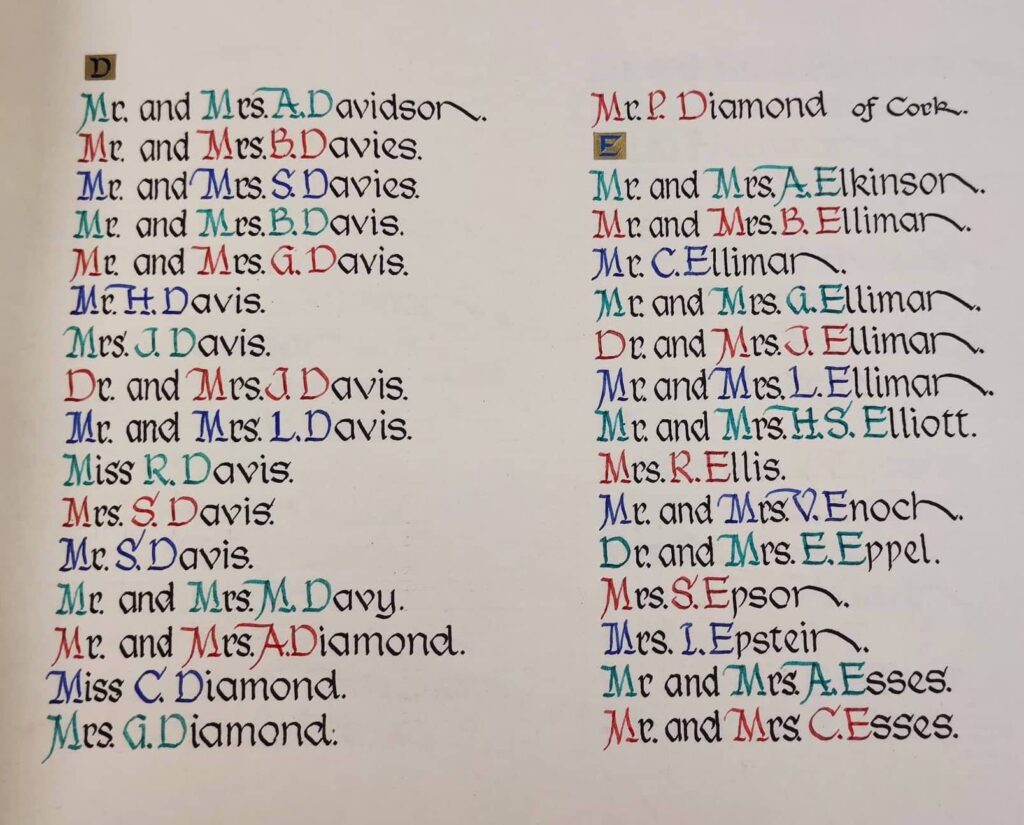 D
Mr. and Mrs. A. Davidson.
Mr. and Mrs. B. Davies.
Mr. and Mrs. S. Davies.
Mr. and Mrs. B. Davis.
Mr. and Mrs. G. Davis.
Mr. H. Davis.
Mrs. J. Davis.
Dr. and Mrs. J. Davis.
Mr. and Mrs. L. Davis.
Miss R. Davis.
Mrs. S. Davis.
Mr. S. Davis.
Mr. and Mrs. M. Davy.
Mr. and Mrs. A. Diamond.
Miss C. Diamond.
Mrs. G. Diamond.
Mr. P. Diamond of Cork.
E
Mr. and Mrs. A. Elkinson.
Mr. and Mrs. B. Elliman.
Mr. C. Elliman.
Mr. and Mrs. G. Elliman.
Dr. and Mrs. J. Elliman.
Mr. and Mrs. L. Elliman.
Mr. and Mrs. H.S. Elliott.
Mrs. R. Ellis.
Mr. and Mrs. V. Enoch.
Dr. and Mrs. E. Eppel.
Mrs. S. Epson.
Mrs. I. Epstein.
Mr and Mrs. A. Esses.
Mr. and Mrs. C. Esses.